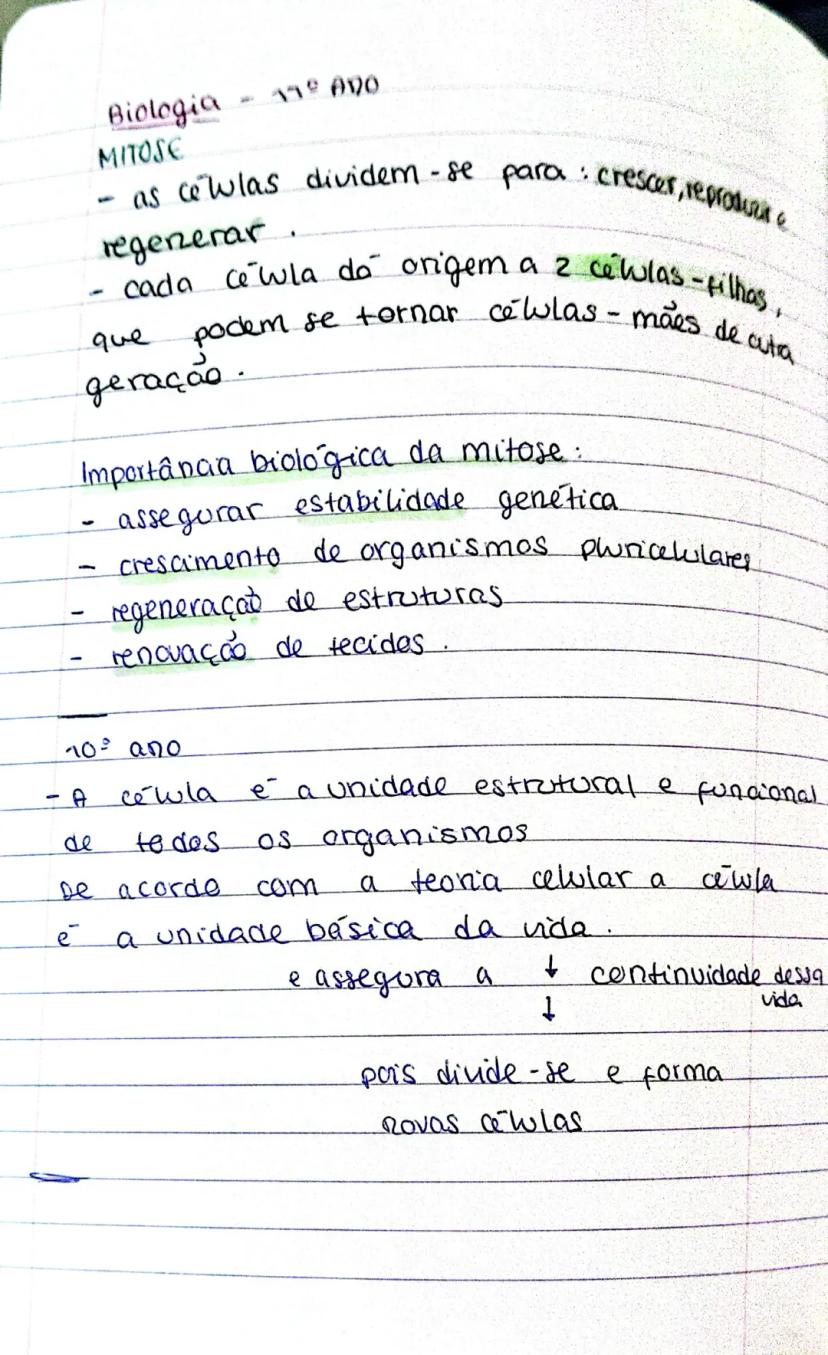 Biologia - 11º ANO
MITOSE
- as células dividem-se para: crescer, reproduzir e
regenerar.
- cada célula dá origem a 2 células-filhas,
que podem se tornar células-mães de outra
geração.
Importância biológica da mitose:
- assegurar estabilidade genética
- crescimento de organismos pluricelulares
- regeneração de estruturas
- renovação de tecidos.
10º ano
- A célula é a unidade estrutural e funcional
de todos os organismos
De acordo com a teoria celular a célula
é a unidade básica da vida.
e assegura a ↓ continuidade dessa
vida
↓
pois divide-se e forma
novas células